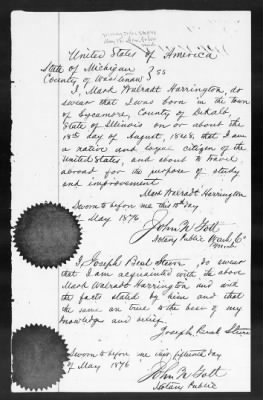 United States of America
State of Michigan
County of Washtenaw } ss
I, Mark Walradt Harrington, do
swear that I was born in the town
of Sycamore, County of DeKalb,
State of Illinois on or about the
18th day of August, 1848, that I am
a native and loyal citizen of the
United States, and about to travel
abroad for the purpose of study
and improvement
Mark Walradt Harrington
Sworn to before me this 15th day
of May 1876
John N Gott
Notary Public Wash. Co
Mich.
I Joseph Beal Steere, do swear
that I am acquainted with the above
Mark Walradt Harrington and with
the facts stated by him and that
the same are true to the best of my
knowledge and belief.
Joseph Beal Steere
Sworn to before me this fifteenth day
of May 1876
John N Gott
Notary Public